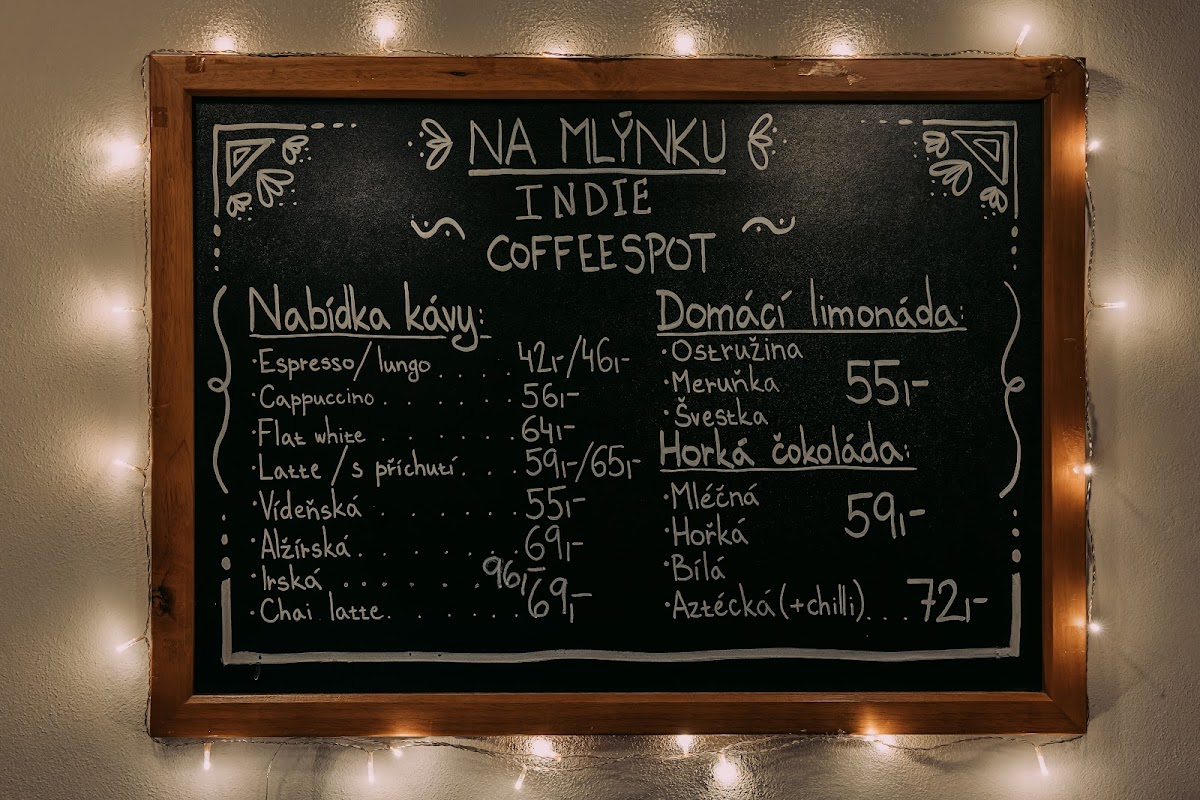 NA MLÝNKU
INDIE
COFFEESPOT
Nabídka kávy:
·Espresso/lungo . . . . . 42,-/46,-
·Cappuccino . . . . . . . 56,-
·Flat white . . . . . . . 64,-
·Latte/s příchutí. . . 59,-/65,-
·Vídeňská . . . . . . 55,-
·Alžírská . . . . . . . 69,-
·Irská . . . . . . . 96,-
·Chai latte. . . . . . . 69,-
Domácí limonáda:
·Ostružina
·Meruňka 55,-
·Švestka
Horká čokoláda:
·Mléčná
·Hořká 59,-
·Bílá
·Aztécká(+chilli). . . 72,-